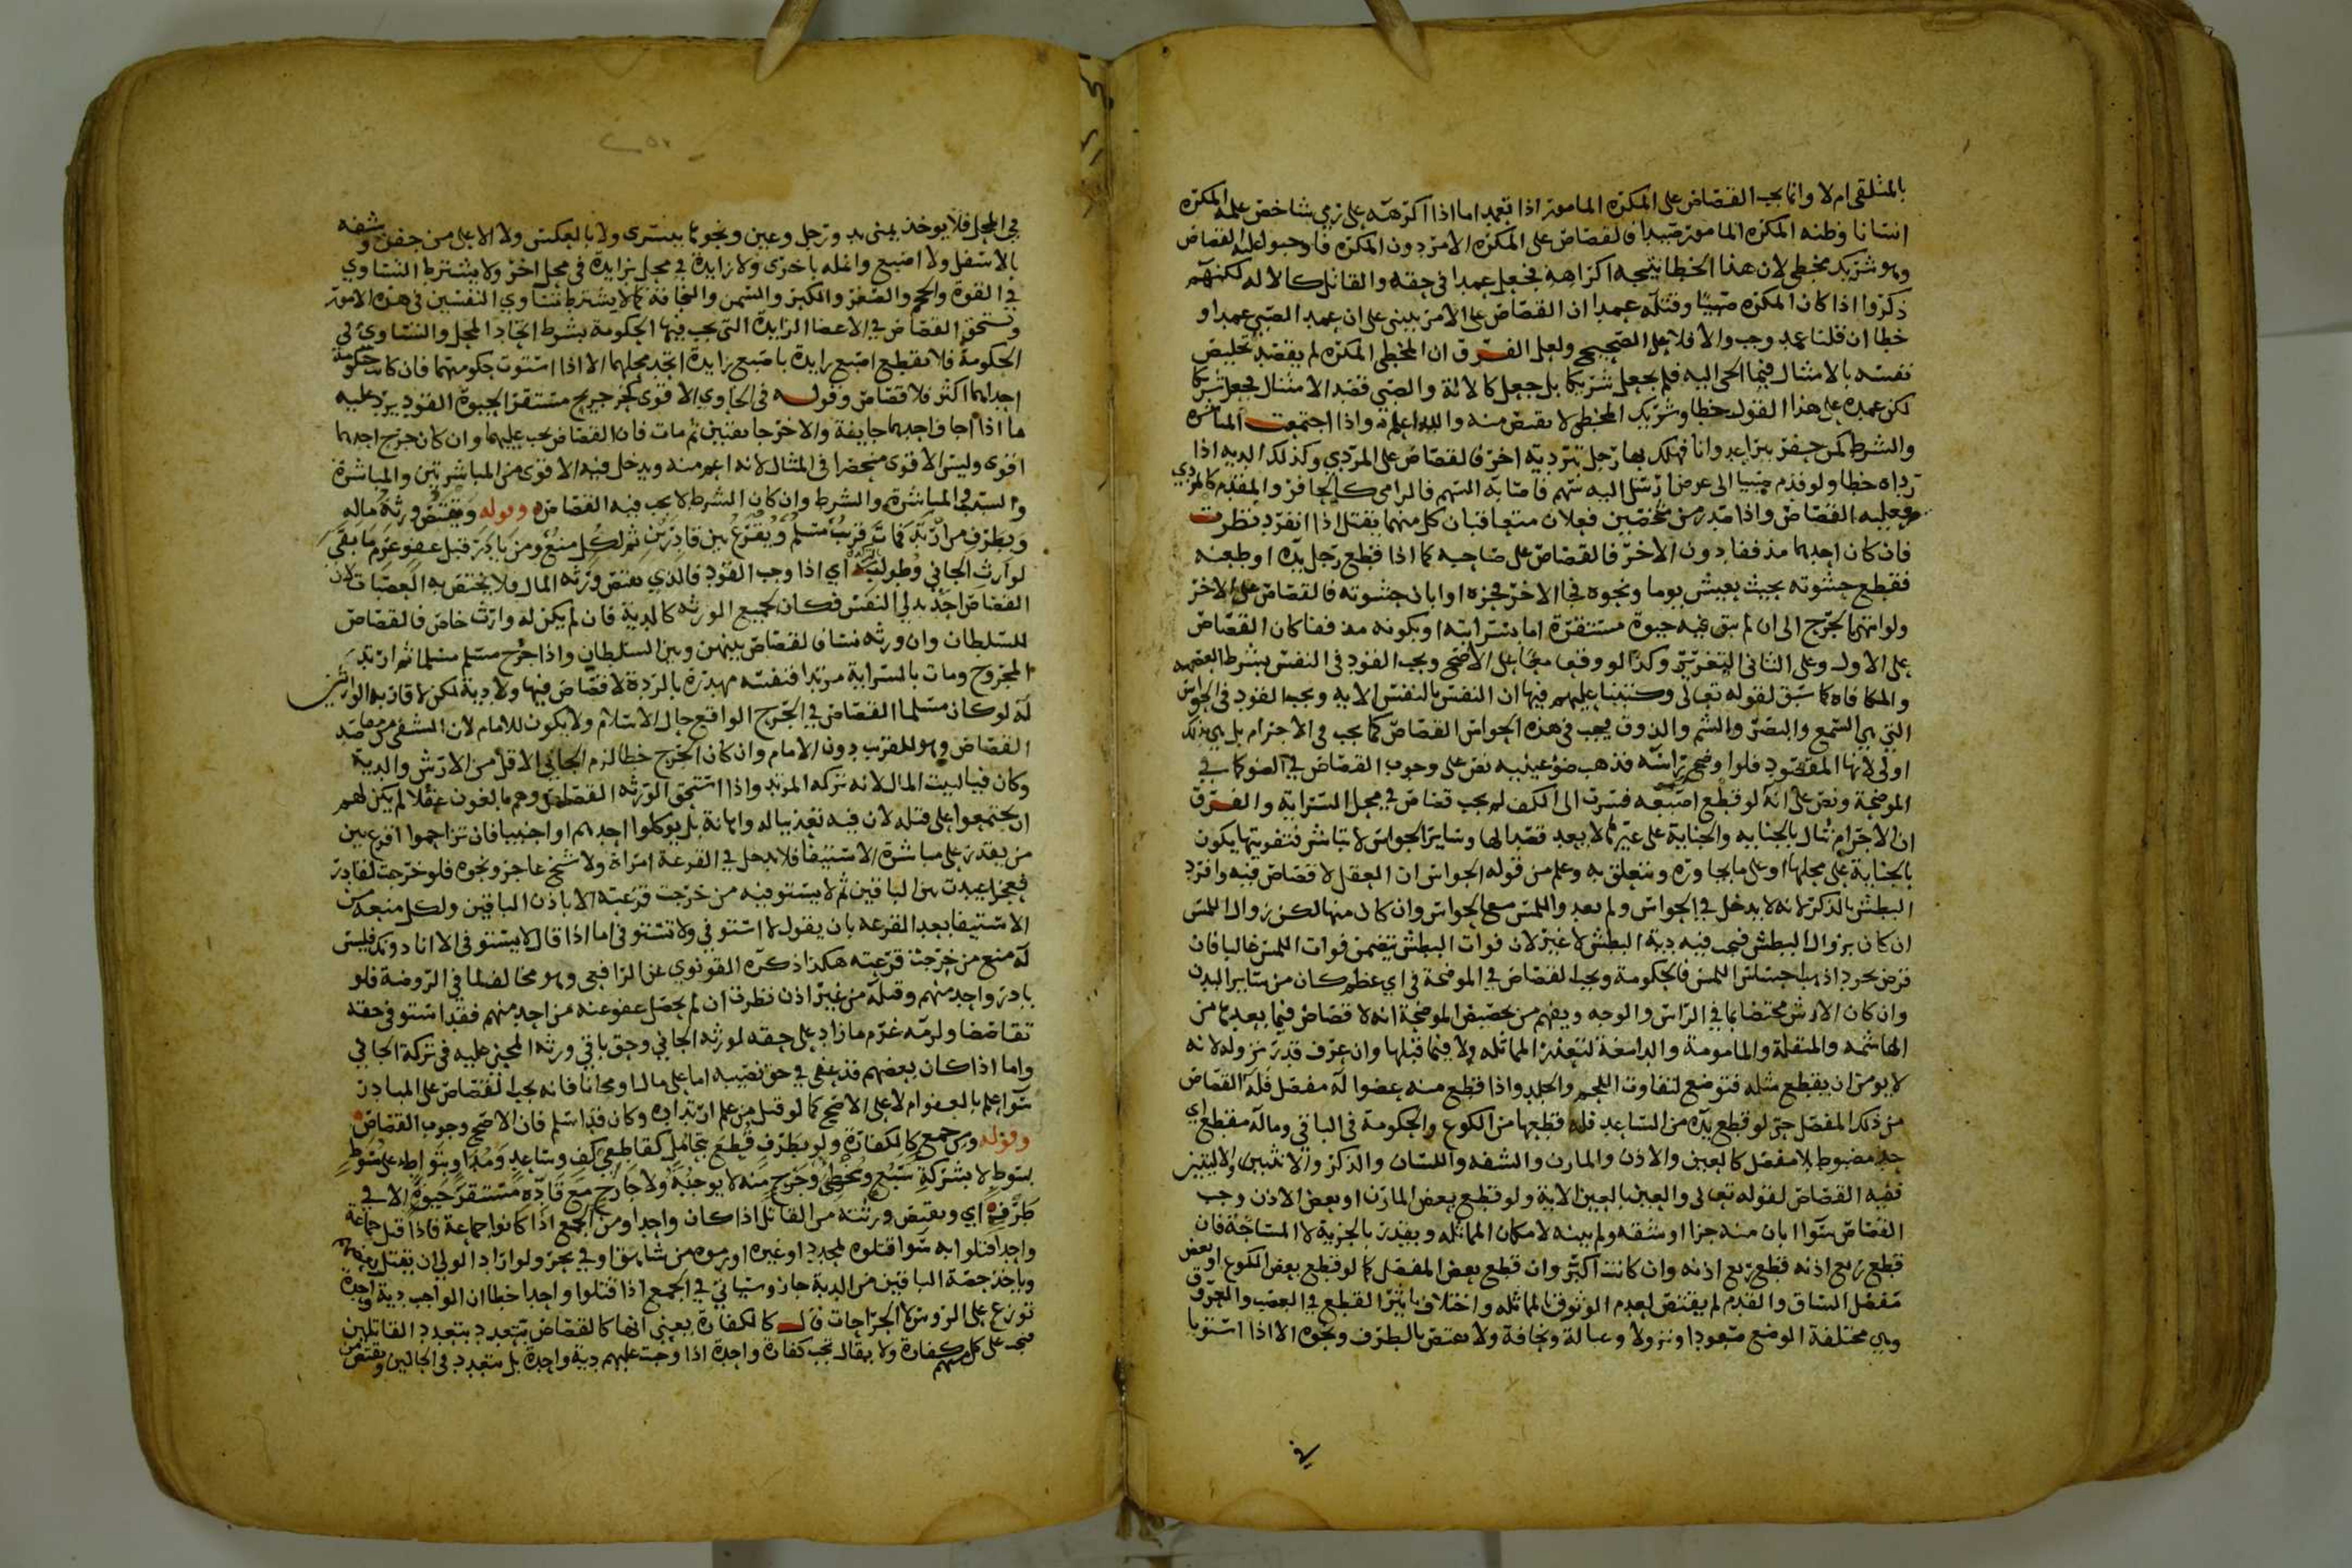 بالمثلقى ام لا وانما يجب القصاص على المكره المامور اذا تعمد اما اذا اكرهه على رمي شاخص علمه المكره
انسانا وظنه المكره المامور صيدا فالقصاص على المكره الامر دون المكره فاوجبوا عليه القصاص
وهو شريك مخطي لان هذا الخطا نتيجه اكراهه فجعل عمدا في حقه والقاتل كالاله لكنهم
ذكروا اذا كان المكره صبيا وقتله عمدا ان القصاص على الامر يبنى على ان عمد الصبي عمد او
خطا ان قلنا عمد وجب والا فلا على الصحيح ولعل الفرق ان المخطي المكره لم يقصد تخليص
نفسه بالامتثال فيما الجي اليه فلم يجعل شريكا بل جعل كالالة والصبي قصد الامتثال فجعل شريكا
لكن عمده على هذا القول خطا وشريك المخطي لا يقتص منه والله اعلم واذا اجتمعت المباشره
والشرط كمن حفر بيرا عدوانا فهلك بها رجل بتردية اخر فالقصاص على المردي وكذلك الدية اذا
رداه خطا ولو قدم صبيا الى عرض ارسل اليه سهم فاصابه السهم فالرامي كالحافر والمقدم كالمردي
فعليه القصاص واذا صدر من شخصين فعلان متعاقبان كل منهما يقتل اذا انفرد نظرت
فان كان احدهما مذففا دون الاخر فالقصاص على صاحبه كما اذا قطع رجل يده او طعنه
فقطع حشوته بحيث يعيش يوما ونحوه فجا الاخر فحزه او ابان حشوته فالقصاص على الاخر
ولو انتهى الجرح الى ان لم يبق فيه حيوة مستقرة اما بسرايته او بكونه مذففا كان القصاص
على الاول وعلى الثاني التعزير وكذا لو وقعا معا على الاصح ويجب القود في النفس بشرط العصمه
والمكافاه كما سبق لقوله تعالى وكتبنا عليهم فيها ان النفس بالنفس الاية ويجب القود في الحواس
التي هي السمع والبصر والشم والذوق يجب في هذه الحواس القصاص كما يجب في الاجرام بل هي بذلك
اولى لانها المقصود فلو اوضح راسه فذهب ضوء عينيه نص على وجوب القصاص في الضو كما في
الموضحة ونص على انه لو قطع اصبعه فسرت الى الكف لم يجب قصاص في محل السراية والفرق
ان الاجرام تنال بالجنايه والجناية على غيرها لا يعد قصدا لها وساير الحواس لا تباشر فتفويتها يكون
بالجناية على محلها او على ما يجاوره ويتعلق به وعلم من قوله الحواس ان العقل لا قصاص فيه وافرد
البطش بالذكر لانه لا يدخل في الحواس ولم يعد واللمس مع الحواس وان كان منها لكن زوال اللمس
ان كان بزوال البطش فتجب فيه دية البطش لا غير لان فوات البطش يتضمن فوات اللمس غالبا فان
فرض مجرد اذهاب حس اللمس فالحكومة ويجب القصاص في الموضحة في اي عظم كان من ساير البدن
وان كان الارش مختصا بما في الراس والوجه ويفهم من تخصيص الموضحة انه لا قصاص فيما بعدها من
الهاشمه والمنقلة والمامومة والدامغة لتعذر المماثله ولا فيما قبلها وان عرف قدر نزوله لانه
لا يومن ان يقطع مثله فتوضح لتفاوت اللحم والجلد واذا قطع منه عضوا له مفصل فله القصاص
من ذلك المفصل حتى لو قطع يده من الساعد فله قطعها من الكوع والحكومة في الباقي وماله مقطع اي
حد مضبوط بلا مفصل كالعين والاذن والمارن والشفه واللسان والذكر والانثيين والاليتين
ففيه القصاص لقوله تعالى والعين بالعين الاية ولو قطع بعض المارن او بعض الاذن وجب
القصاص سوا ابان منه جزا او شقه ولم يبنه لامكان المماثله ويقدر بالجزية لا المساحة فان
قطع ربع اذنه قطع ربع اذنه وان كانت اكبر وان قطع بعض المفصل كما لو قطع بعض الكوع او بعض
مفصل الساق والقدم لم يقتص لعدم الوثوق بالمماثله واختلاف تاثير القطع في العصب والعروق
وهي مختلفة الوضع صعودا ونزولا وعبالة ونحافة ولا يقتص بالطرف ونحوه الا اذا استويا
في
في المحل فلا يوخذ يمنى يد ورجل وعين ونحوها بيسرى ولا بالعكس ولا الاعلى من جفن وشفه
بالاسفل ولا اصبع وانمله باخرى ولا زايدة في محل بزايدة في محل اخر ولا يشترط التساوي
في القوة والحجم والصغر والكبر والسمن والنحافة كما لا يشترط تساوي النفسين في هذه الامور
ويستحق القصاص في الاعضا الزايدة التي يجب فيها الحكومة بشرط اتحاد المحل والتساوي في
الحكومة فلا تقطع اصبع زايدة باصبع زايدة اتحد محلهما الا اذا استوت حكومتهما فان كانت حكومة
احداهما اكثر فلا قصاص وقوله في الحاوي الاقوى كجرح جريح مستقر الحيوة القود يرد عليه
ما اذا اجاف احدهما جايفة والاخر جايفتين ثم مات فان القصاص يجب عليهما وان كان جرح احدهما
اقوى وليس الاقوى منحصرا في المثال لانه اعم منه ويدخل فيه الاقوى من المباشرتين والمباشرة
والسبب في المباشرة والشرط وان كان الشرط لا يجب فيه القصاص وقوله ويقتص ورثة ماله
وبطرف مرتد فمات قريب مسلم ويقرع بين قادرين ثم لكل منع ومن بادر قبل عفو غرم ما بقي
لوارث الجاني وطولبه اي اذا وجب القود فالذي يقتص ورثه المال ولا يختص به العصبات لان
القصاص احد بدلي النفس فكان لجميع الورثه كالدية فان لم يكن له وارث خاص فالقصاص
للسلطان وان ورثه نسا فالقصاص بينهن وبين السلطان واذا جرح مسلم مسلما ثم ارتد
المجروح ومات بالسراية مرتدا فنفسه مهدرة بالردة لا قصاص فيها ولا دية لكن لاقاربه الوارثين
له لو كان مسلما القصاص في الجرح الواقع حال الاسلام ولا يكون للامام لان التشفي من مقاصد
القصاص وهو للقريب دون الامام وان كان الجرح خطا لزم الجاني الاقل من الارش والدية
وكان فيا لبيت المال لانه تركه المرتد واذا استحق الورثه القصاص وهم بالغون عقلا لم يكن لهم
ان يجتمعوا على قتله لان فيه تعذيبا له واهانة بل يوكلوا احدهم او اجنبيا فان تزاحموا اقرع بين
من يقدر على مباشرة الاستيفا فلا يدخل في القرعة امراة ولا شيخ عاجز ونحوه فلو خرجت لقادر
فعجز اعيدت بين الباقين ثم لا يستوفيه من خرجت قرعته الا باذن الباقين ولكل منعه من
الاستيفا بعد القرعه بان يقول لا استوفي ولا تستوفي اما اذا قال لا يستوفي الا انا دونك فليس
له منع من خرجت قرعته هكذا ذكره القونوي عن الرافعي وهو مخالف لما في الروضة فلو
بادر واحد منهم وقتله من غير اذن نظرت ان لم يحصل عفو عنه من احد منهم فقد استوفى حقه
تقاصصا ولزمه غرم ما زاد على حقه لورثه الجاني وحق باقي ورثه المجني عليه في تركة الجاني
واما اذا كان بعضهم قد عفى في حق نصيبه اما على مال او مجانا فانه يجب القصاص على المبادر
سوا علم بالعفو ام لا على الاصح كما لو قتل من علم ارتداده وكان قد اسلم فان الاصح وجوب القصاص
وقوله ومن جمع كالكفارة ولو بطرف قطع بتحامل كقاطعي كف وساعد ومدا وبتواطء على سوط
بسوط لا بشركة سبع ومخطئ وجرح منه لا يوجبه ولا جارح مع قاده مستقر حيوة الا في
طرفه اي ويقتص ورثته من القاتل اذا كان واحدا ومن الجمع اذا كانوا جماعة فاذا قتل جماعة
واحدا قتلوا به سوا قتلوه بمحدد او غيره او رموه من شاهق او في بحر ولو اراد الولي ان يقتل بعضهم
وياخذ حصة الباقين من الدية جاز وسياتي في الجمع اذا قتلوا واحدا خطا ان الواجب دية واحدة
توزع على الروس لا الجراحات قال كالكفارة يعني انها كالقصاص تتعدد بتعدد القاتلين
فيجب على كل منهم كفارة ولا يقال تجب كفارة واحدة اذا وجب عليهم دية واحدة بل تتعدد في الحالين ويقتص من